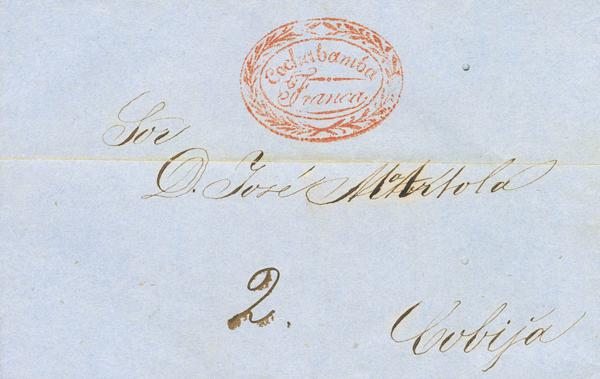 Cochabamba
Franca
Sor
D. José Ma Artola
2.
Cobija